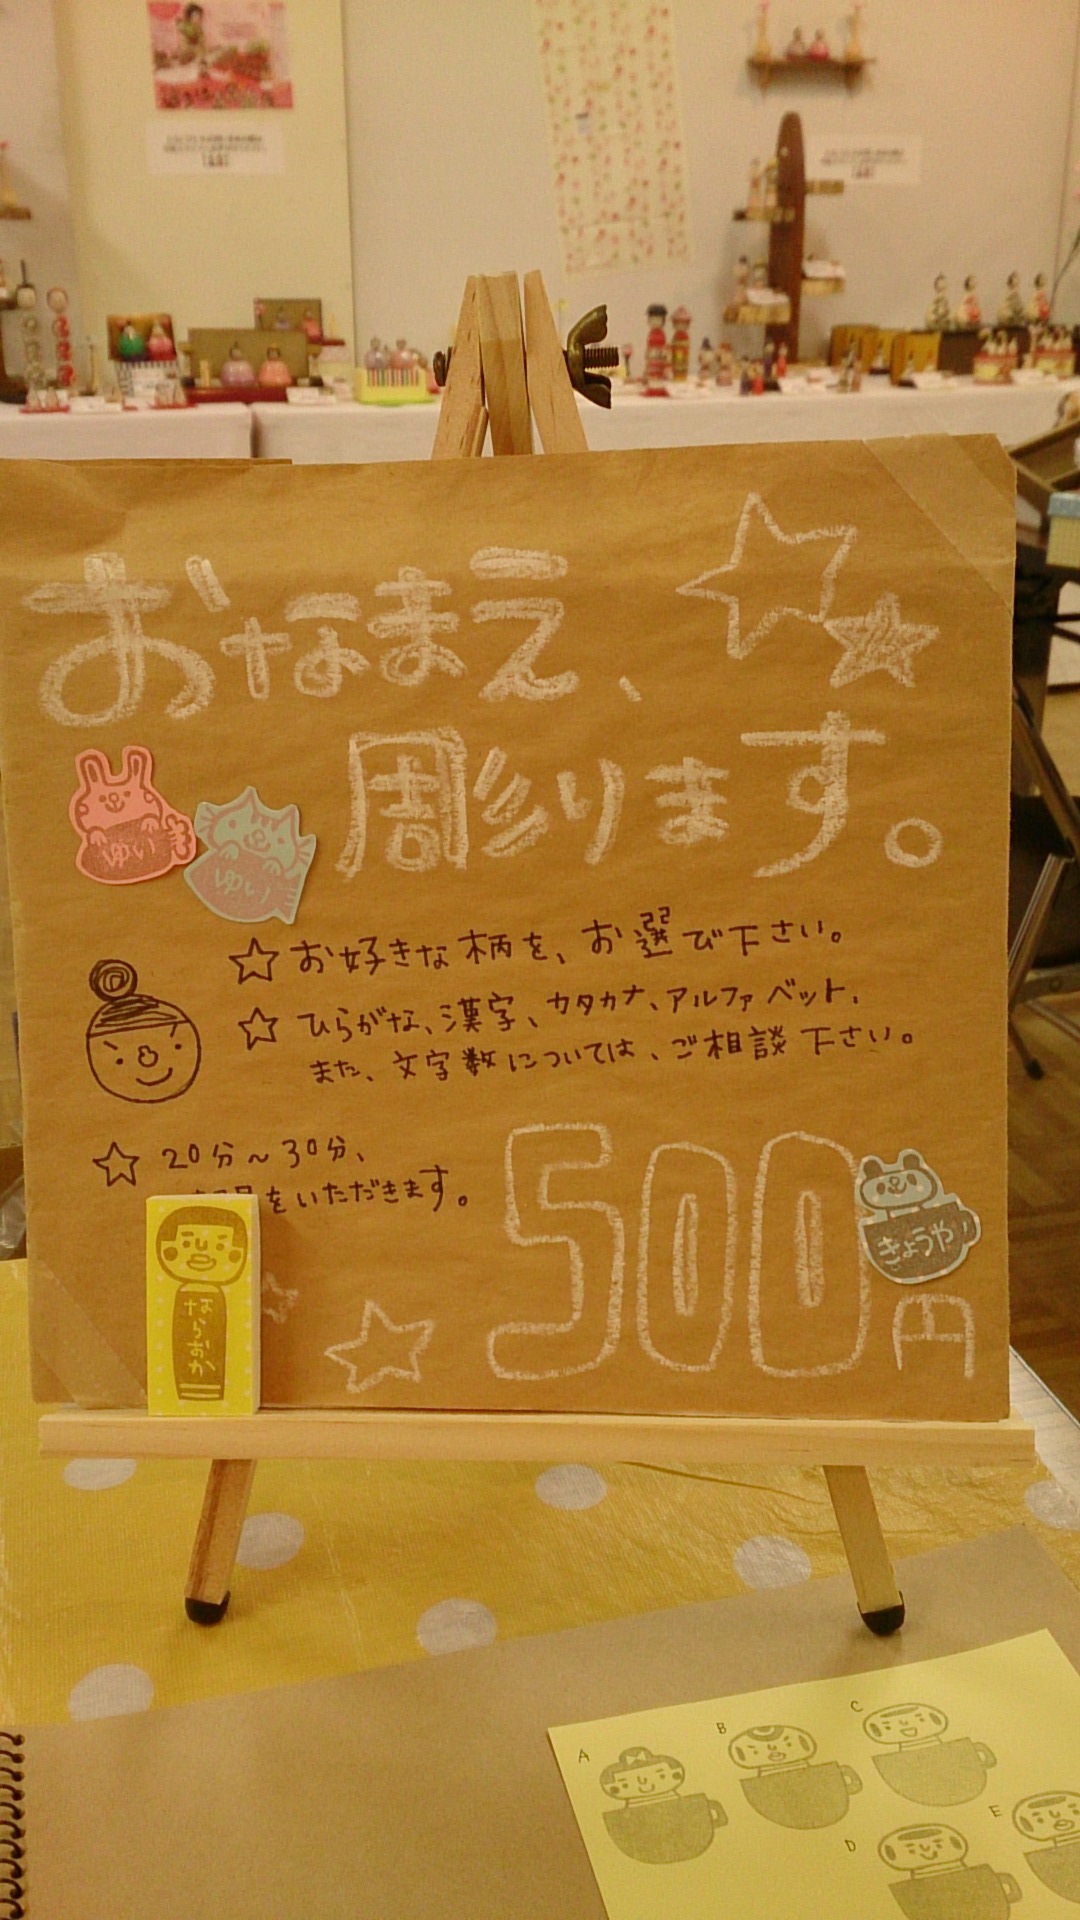 おなまえ、
彫ります。
ゆい
ゆい
☆お好きな柄を、お選び下さい。
☆ひらがな、漢字、カタカナ、アルファベット、
また、文字数については、ご相談下さい。
☆20分～30分、
をいただきます。
500円
きょうや
ならおか
A
B
C
D
E